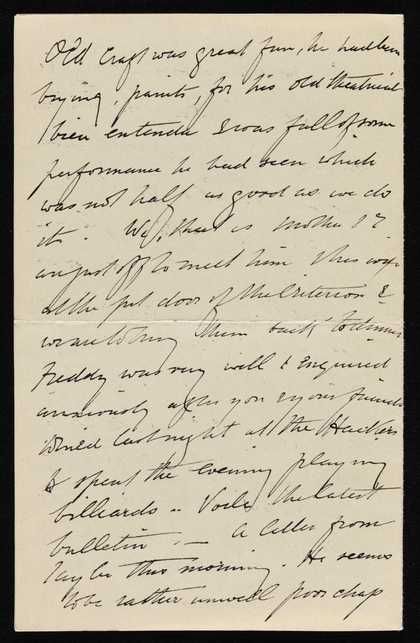 Old Craft was great fun, he had been
buying, paints, for his old theatricals
bien entendu & was full of some
performance he had seen which
was not half as good as we do
it. We, that is mother & I
are just off to meet him & his wife
at the pit door of the Criterion &
we are to bring them back to dinner
Freddy was very well & enquired
anxiously after you
dined last night at the
& spent the evening playing
billiards – Voila the latest
bulletin :— a letter from
this morning. He seems
to be rather unwell poor chap